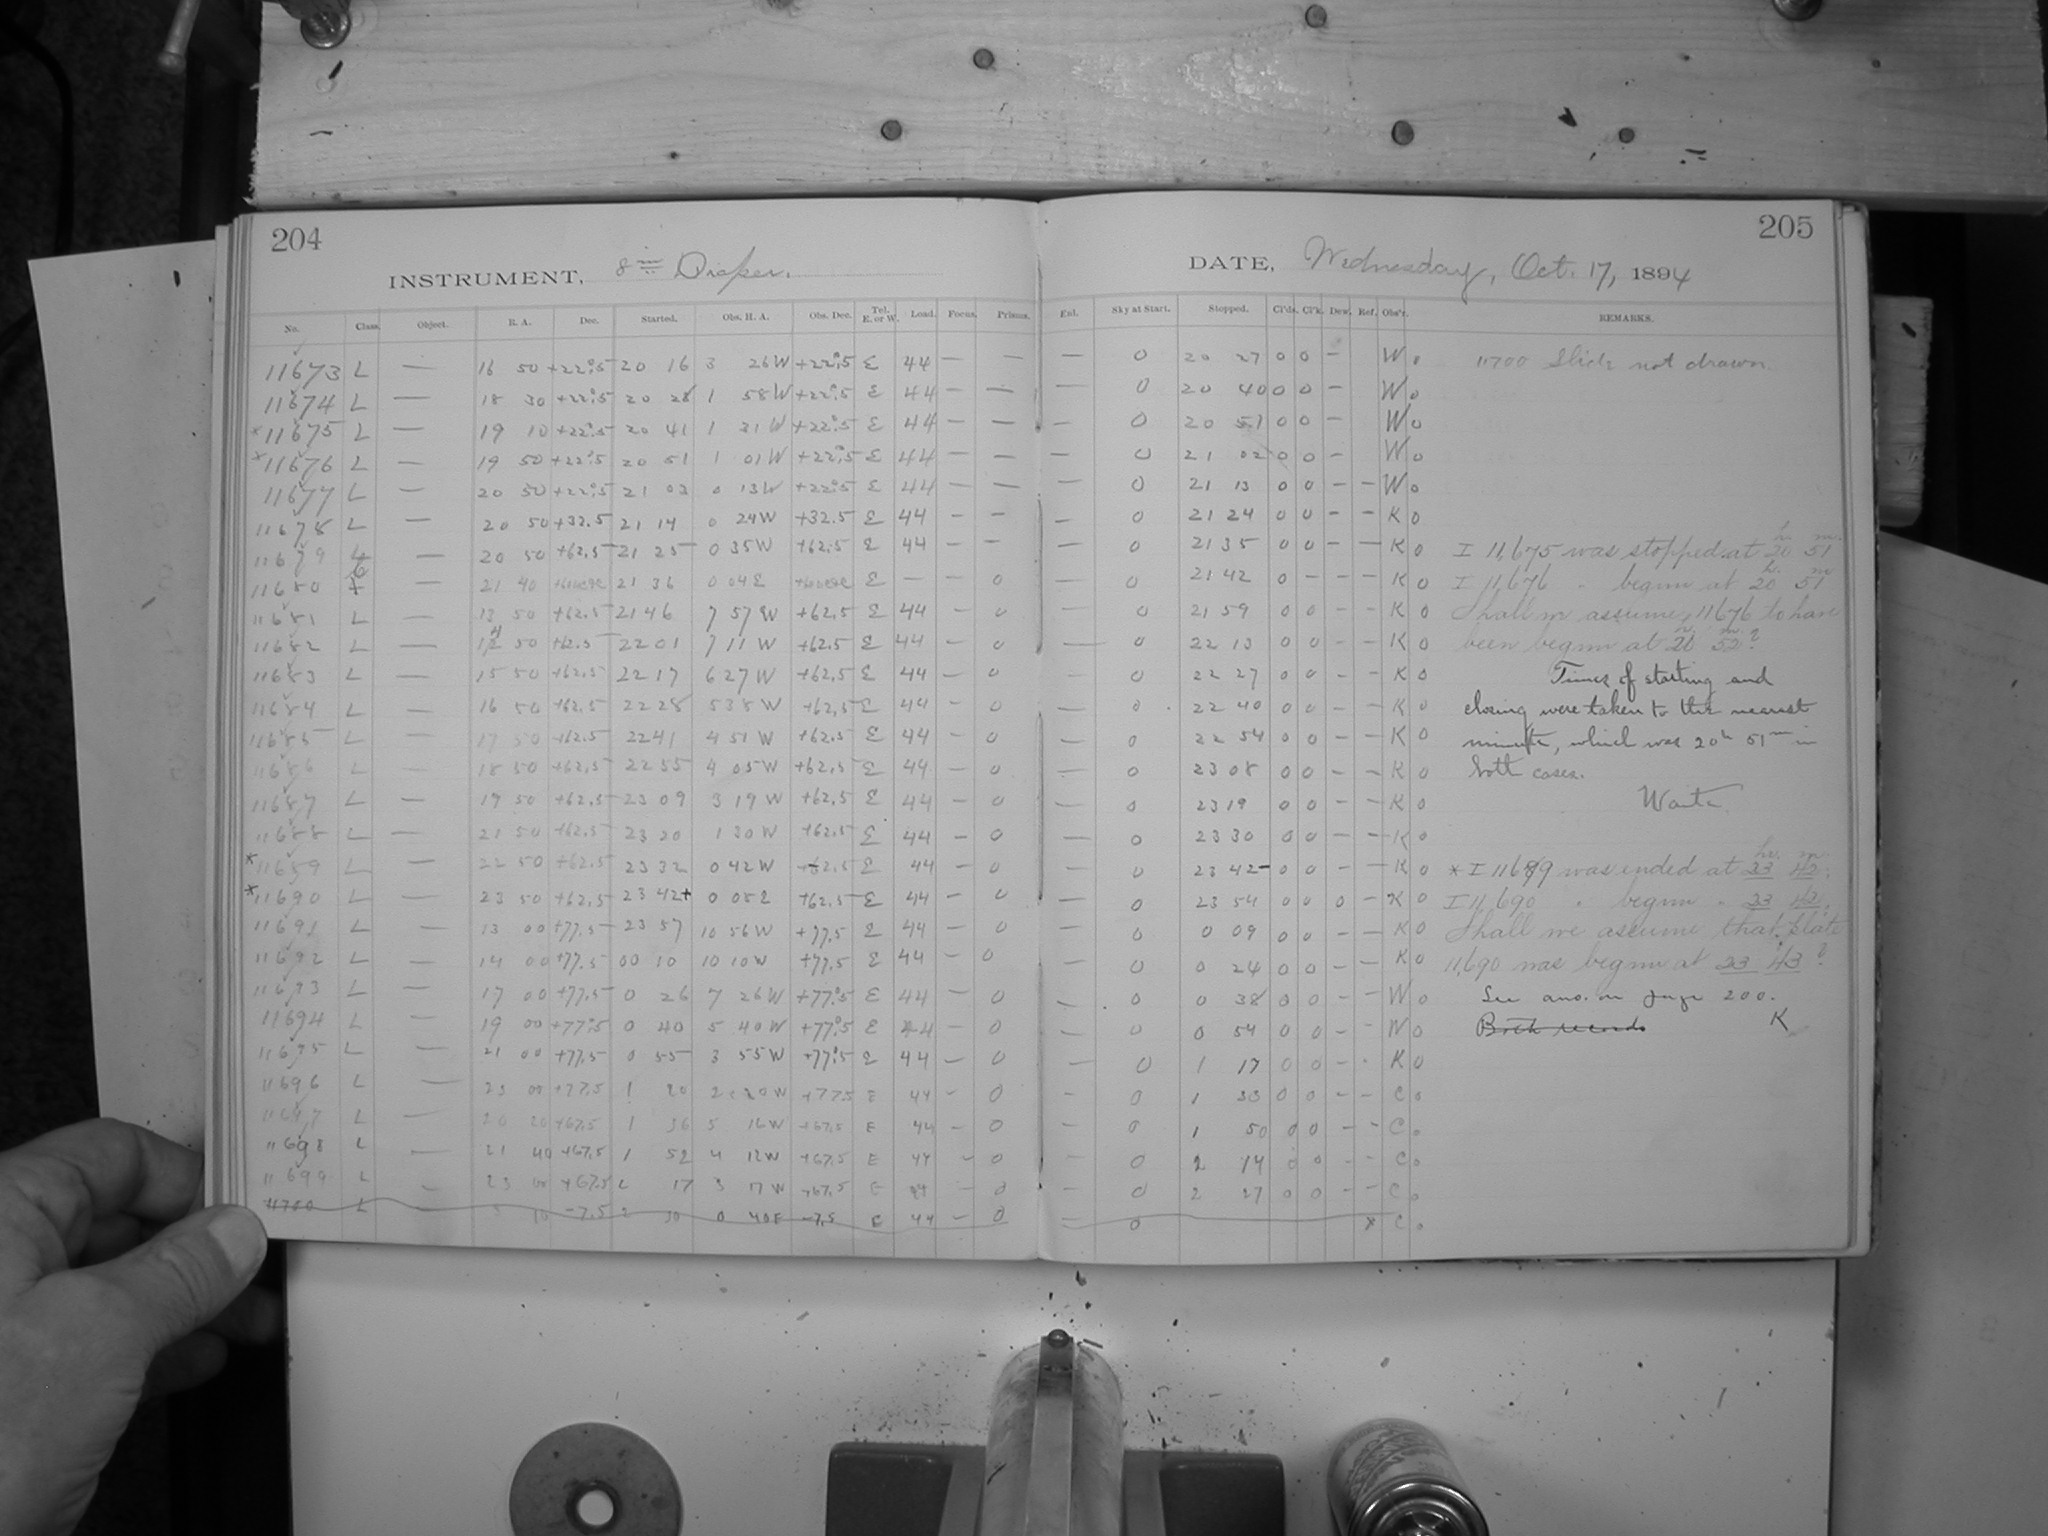 204
205
INSTRUMENT, 8 in Draper.
DATE, Wednesday, Oct. 17, 1894
No. Class. Object. R. A. Dec. Started. Obs. H. A. Obs. Dec. Tel. E. or W. Load. Focus. Prisms. Enl. Sky at Start. Stopped. Cl'ds. Cl'k. Dew. Ref. Obs'r. REMARKS.
11673 L — 16 50 +22°.5 20 16 3 26W +22°.5 E 44 — — — 0 20 27 0 0 – W 0 11700 Slide not drawn.
11674 L — 18 30 +22°.5 20 28 1 58W +22°.5 E 44 — — — 0 20 40 0 0 – W 0
*11675 L — 19 10 +22°.5 20 41 1 31W +22°.5 E 44 — — — 0 20 51 0 0 – W 0
*11676 L — 19 50 +22°.5 20 51 1 01W +22°.5 E 44 — — — 0 21 02 0 0 – W 0
11677 L — 20 50 +22°.5 21 03 0 13W +22°.5 E 44 — — — 0 21 13 0 0 – – W 0
11678 L — 20 50 +32.5 21 14 0 24W +32.5 E 44 – – – 0 21 24 0 0 – – K 0
11679 L — 20 50 +62.5 21 25 0 35W +62.5 E 44 – – – 0 21 35 0 0 – – K 0 I 11,675 was stopped at 20 h 51 m.
11680 — 21 40 21 36 0 04E E — — 0 — 0 21 42 0 – – – K 0 I 11,676 " begun at 20 h. 51 m
11681 L — 13 50 +62.5 21 46 7 57W +62.5 E 44 – 0 — 0 21 59 0 0 – – K 0 Shall we assume 11676 to have
11682 L — 14 50 +62.5 22 01 7 11W +62.5 E 44 – 0 — 0 22 13 0 0 – – K 0 been begun at 20 h. 52 m.?
11683 L — 15 50 +62.5 22 17 6 27W +62.5 E 44 – 0 — 0 22 27 0 0 – – K 0 Times of starting and
11684 L — 16 50 +62.5 22 28 5 38W +62.5 E 44 – 0 — 0 22 40 0 0 – – K 0 closing were taken to the nearest
11685 L — 17 50 +62.5 22 41 4 51W +62.5 E 44 – 0 — 0 22 54 0 0 – – K 0 minute, which was 20h 51m in
11686 L — 18 50 +62.5 22 55 4 05W +62.5 E 44 – 0 — 0 23 08 0 0 – – K 0 both cases.
11687 L — 19 50 +62.5 23 09 3 19W +62.5 E 44 – 0 — 0 23 19 0 0 – – K 0
11688 L — 21 50 +62.5 23 20 1 30W +62.5 E 44 – 0 — 0 23 30 0 0 – – K 0
*11689 L — 22 50 +62.5 23 32 0 42W +62.5 E 44 – 0 — 0 23 42– 0 0 – – K 0 * I 11689 was ended at 23 hr. 42 m.
*11690 L — 23 50 +62.5 23 42+ 0 05E +62.5 E 44 – 0 — 0 23 54 0 0 0 – K 0 I 11,690 " begun " 23 42.
11691 L — 13 00 +77.5 23 57 10 56W +77.5 E 44 – 0 — 0 0 09 0 0 – – K 0 Shall we assume that plate
11692 L — 14 00 +77.5 00 10 10 10W +77.5 E 44 – 0 — 0 0 24 0 0 – – K 0 11,690 was begun at 23 43?
11693 L — 17 00 +77.5 0 26 7 26W +77°.5 E 44 – 0 — 0 0 38 0 0 – – W 0 See ans. on page 200.
11694 L — 19 00 +77°.5 0 40 5 40W +77°.5 E 44 – 0 — 0 0 54 0 0 – – W 0 Both records K
11695 L — 21 00 +77.5 0 55 3 55W +77°.5 E 44 – 0 — 0 1 17 0 0 – · K 0
11696 L — 23 00 +77.5 1 20 2 20W +77.5 E 44 – 0 — 0 1 33 0 0 – – C 0
11697 L — 20 20 +67.5 1 36 5 16W +67.5 E 44 – 0 — 0 1 50 0 0 – – C 0
11698 L — 21 40 +67.5 1 52 4 12W +67.5 E 44 – 0 — 0 2 14 0 0 – – C 0
11699 L — 23 00 +67.5 2 17 3 17W +67.5 E 44 – 0 — 0 2 27 0 0 – – C 0
11700 L 3 10 –7.5 2 30 0 40E –7.5 E 44 – 0 — 0 x C 0